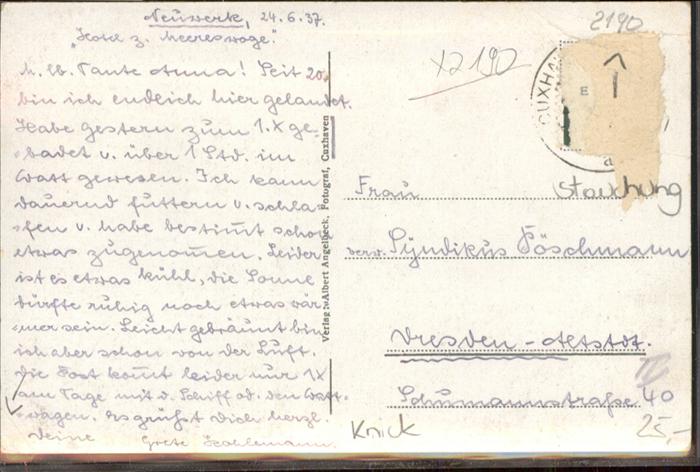 Neuwerk, 24.6.37.
„Hotel z. Meereswoge."
M. lb. Tante Anna! Seit 20.
bin ich endlich hier gelandet.
Habe gestern zum 1. X ge-
badet u. über 1 Std. im
Watt gewesen. Ich kann
dauernd futtern u. schla-
fen u. habe bestimt schon
etwas zugenomen. Leider
ist es etwas kühl, die Sonne
dürfte ruhig noch etwas wär-
mer sein. Leicht gebräunt bin
ich aber schon von der Luft.
Die Post komt leider nur 1X
am Tage mit d. Schiff od. dem Watt-
wagen. Es grüßt Dich herzl.
Deine Grete
Verlag: Albert Angelbeck, Fotograf, Cuxhaven
2190
X2190
CUXHA
E
Stauchung
Frau
verw. Syndikus Pöschmann
Dresden-Altstdt.
IV
Schumannstraße 40
Knick
25,-